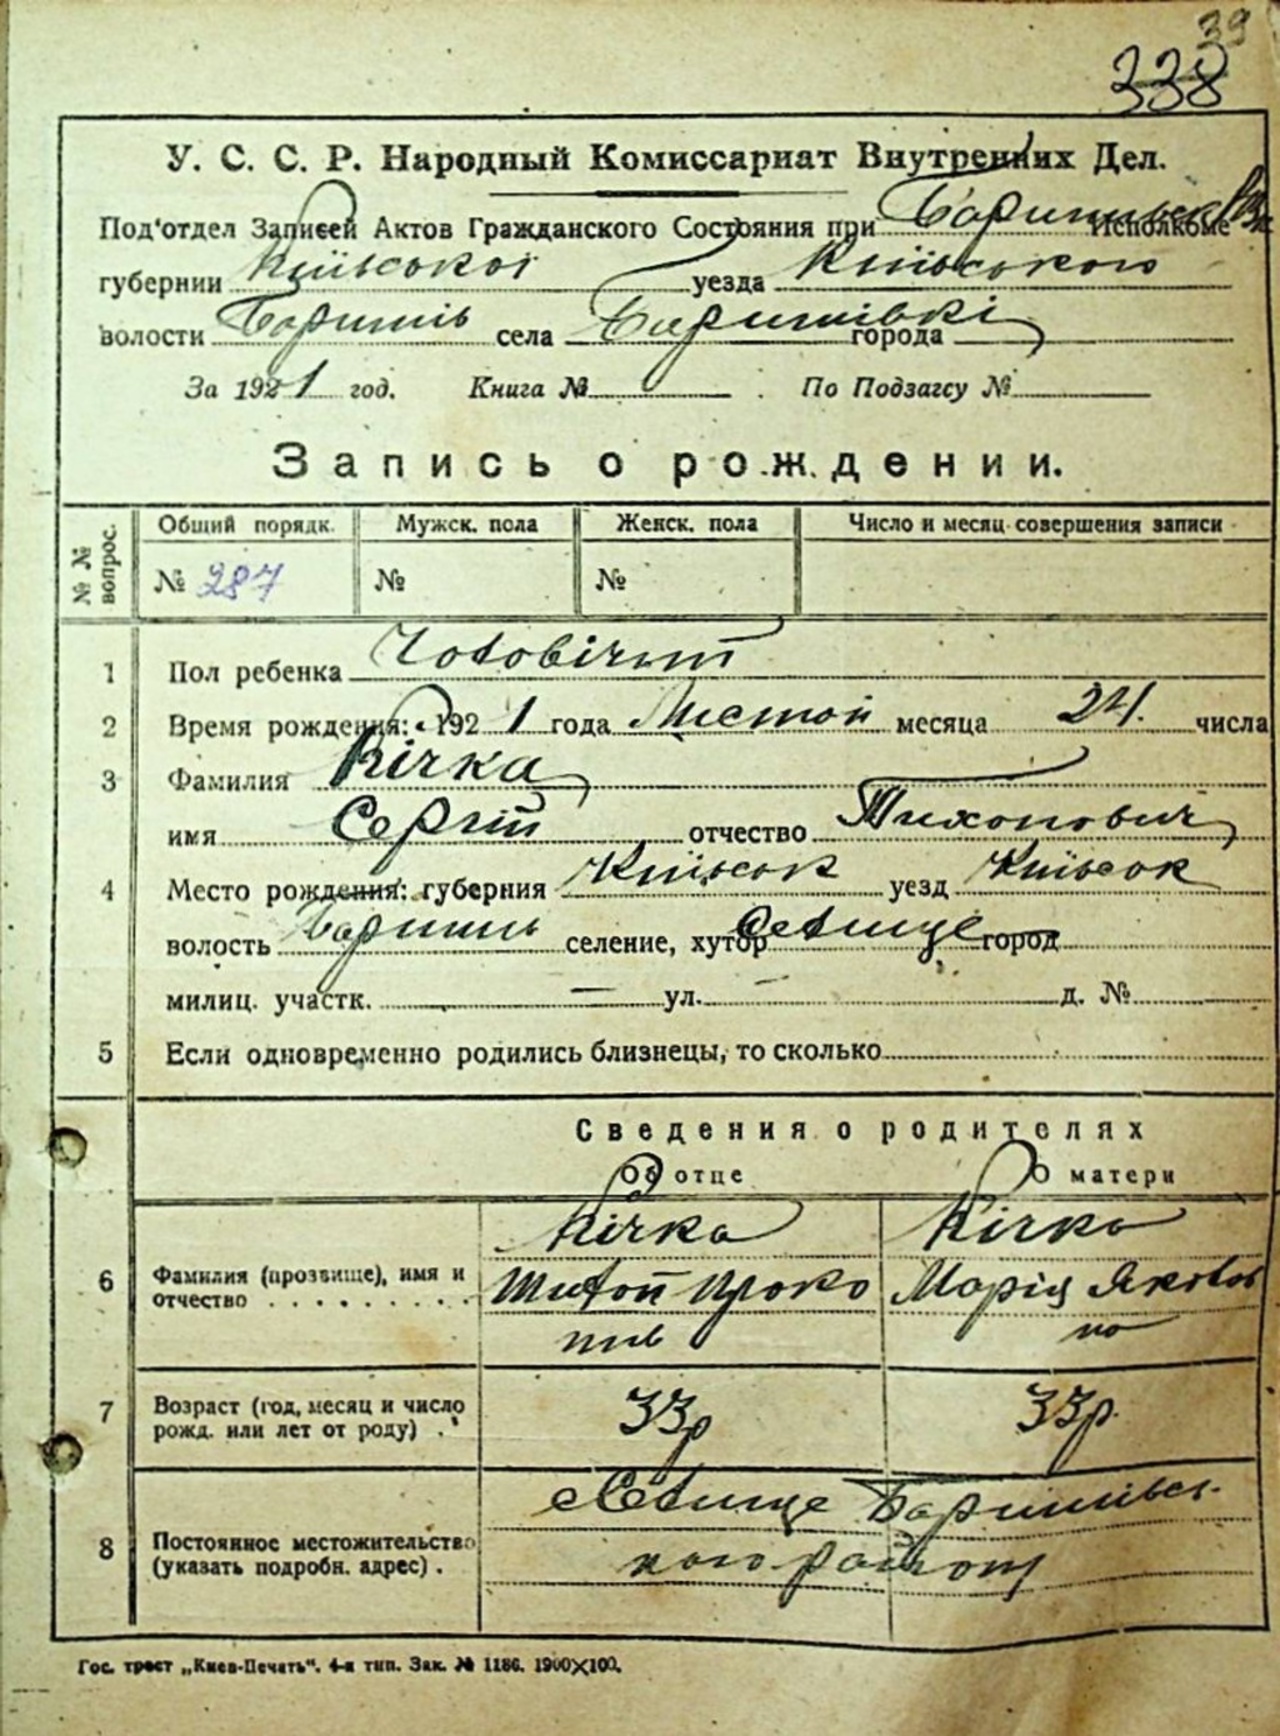 39
338
У. С. С. Р. Народный Комиссариат Внутренних Дел.
Под'отдел Записей Актов Гражданского Состояния при Исполкоме
губернии Київської уезда Київського
волости Баришів села Баришівкі города
За 1921 год. Книга № По Подзагсу №
Запись о рождении.
№ № вопрос. Общий порядк. Мужск. пола Женск. пола Число и месяц совершения записи
№ 287 № №
1 Пол ребенка Чоловічий
2 Время рождения: 1921 года месяца 24. числа
3 Фамилия Кічка
имя Сергій отчество Тихонович
4 Место рождения: губерния Київськ уезд Київськ
волость Баришів селение, хутор Селище город
милиц. участк. — ул. — д. №
5 Если одновременно родились близнецы, то сколько
Сведения о родителях
Об отце О матери
Кічка Кічка
6 Фамилия (прозвище), имя и Проко Марія Яковлев
отчество . . . . . . . . . . пів на
7 Возраст (год, месяц и число 33р 33р.
рожд. или лет от роду) .
Селище Баришівсь-
8 Постоянное местожительство кого району
(указать подробн. адрес) .
Гос. трест „Киев-Печать“. 4-я тип. Зак. № 1186. 1900×100.